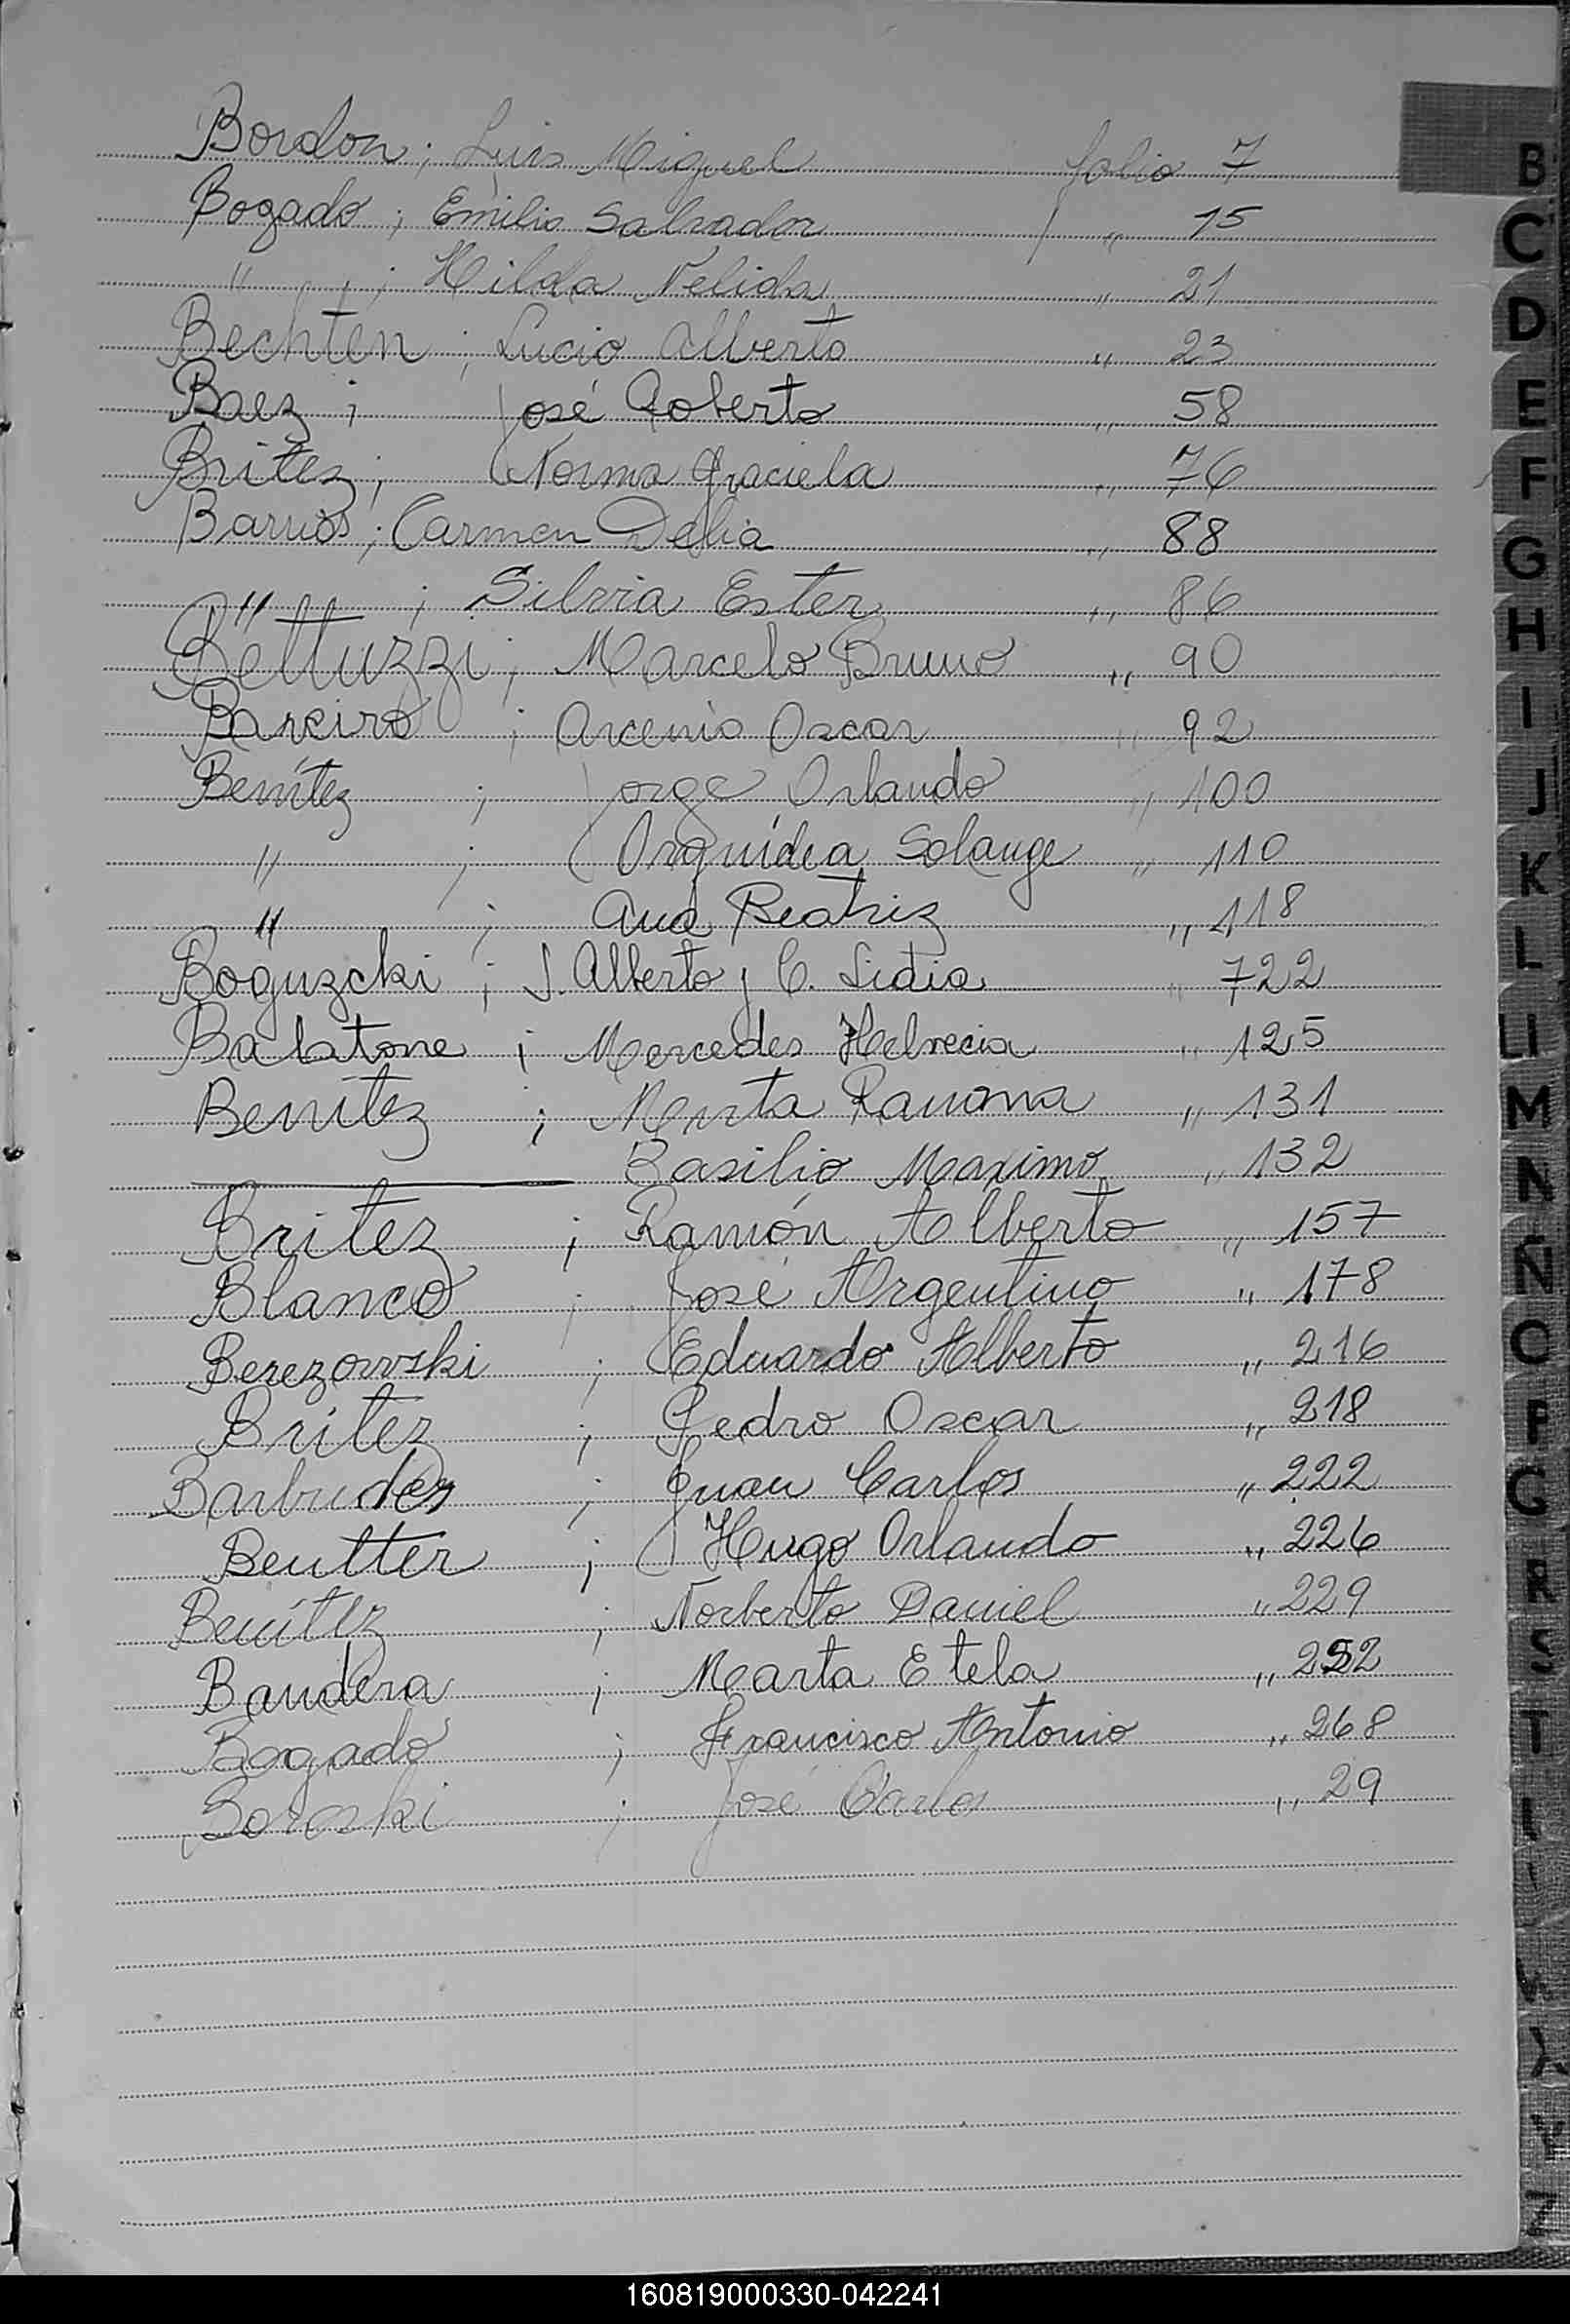 Bordon ; Luis Miguel folio 7
Bogado ; Emilio Salvador " 15
" ; Hilda Nelida " 21
Bechten ; Lucio Alberto " 23
Baez ; José Roberto " 58
Britez ; Norma Graciela " 76
Barrios ; Carmen Delia " 88
" ; Silvia Ester " 86
Bettuzzi ; Marcelo Bruno " 90
Bareiro ; Arcenio Oscar " 92
Benítez ; Jorge Orlando " 100
" ; Orquídea Solange " 110
" ; Ana Beatriz " 118
Boguzcki ; J. Alberto y C. Lidia " 722
Balatone ; Mercedes Helvecia " 125
Benítez ; Mirta Ramona " 131
Basilio Maximo " 132
Britez ; Ramón Alberto " 157
Blanco ; José Argentino " 178
Berezowski ; Eduardo Alberto " 216
Britez ; Pedro Oscar " 218
; Juan Carlos " 222
Beutter ; Hugo Orlando " 226
Benítez ; Norberto Daniel " 229
Bandera ; Marta Etela " 252
Bogado ; Francisco Antonio " 268
; José Carlos " 29
B
C
D
E
F
G
H
I
J
K
L
Ll
M
N
Ñ
O
P
Q
R
S
T
160819000330-042241